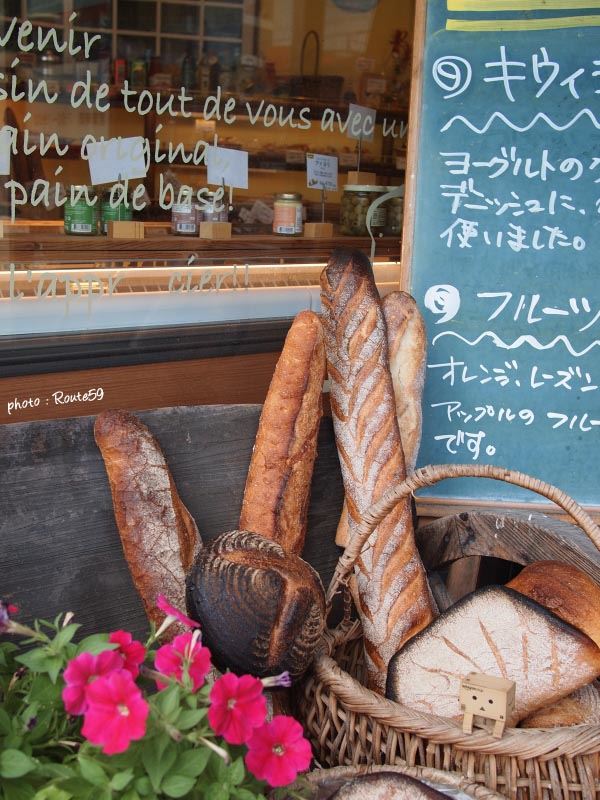 venir
sin de tout de vous avec un
ain original,
pain de base!
l'appr cier!!
photo : Route59
⑨ キウィ
ヨーグルトの
デニッシュに、
使いました。
⑨ フルーツ
オレンジ、レーズン
アップルの フルー
です。